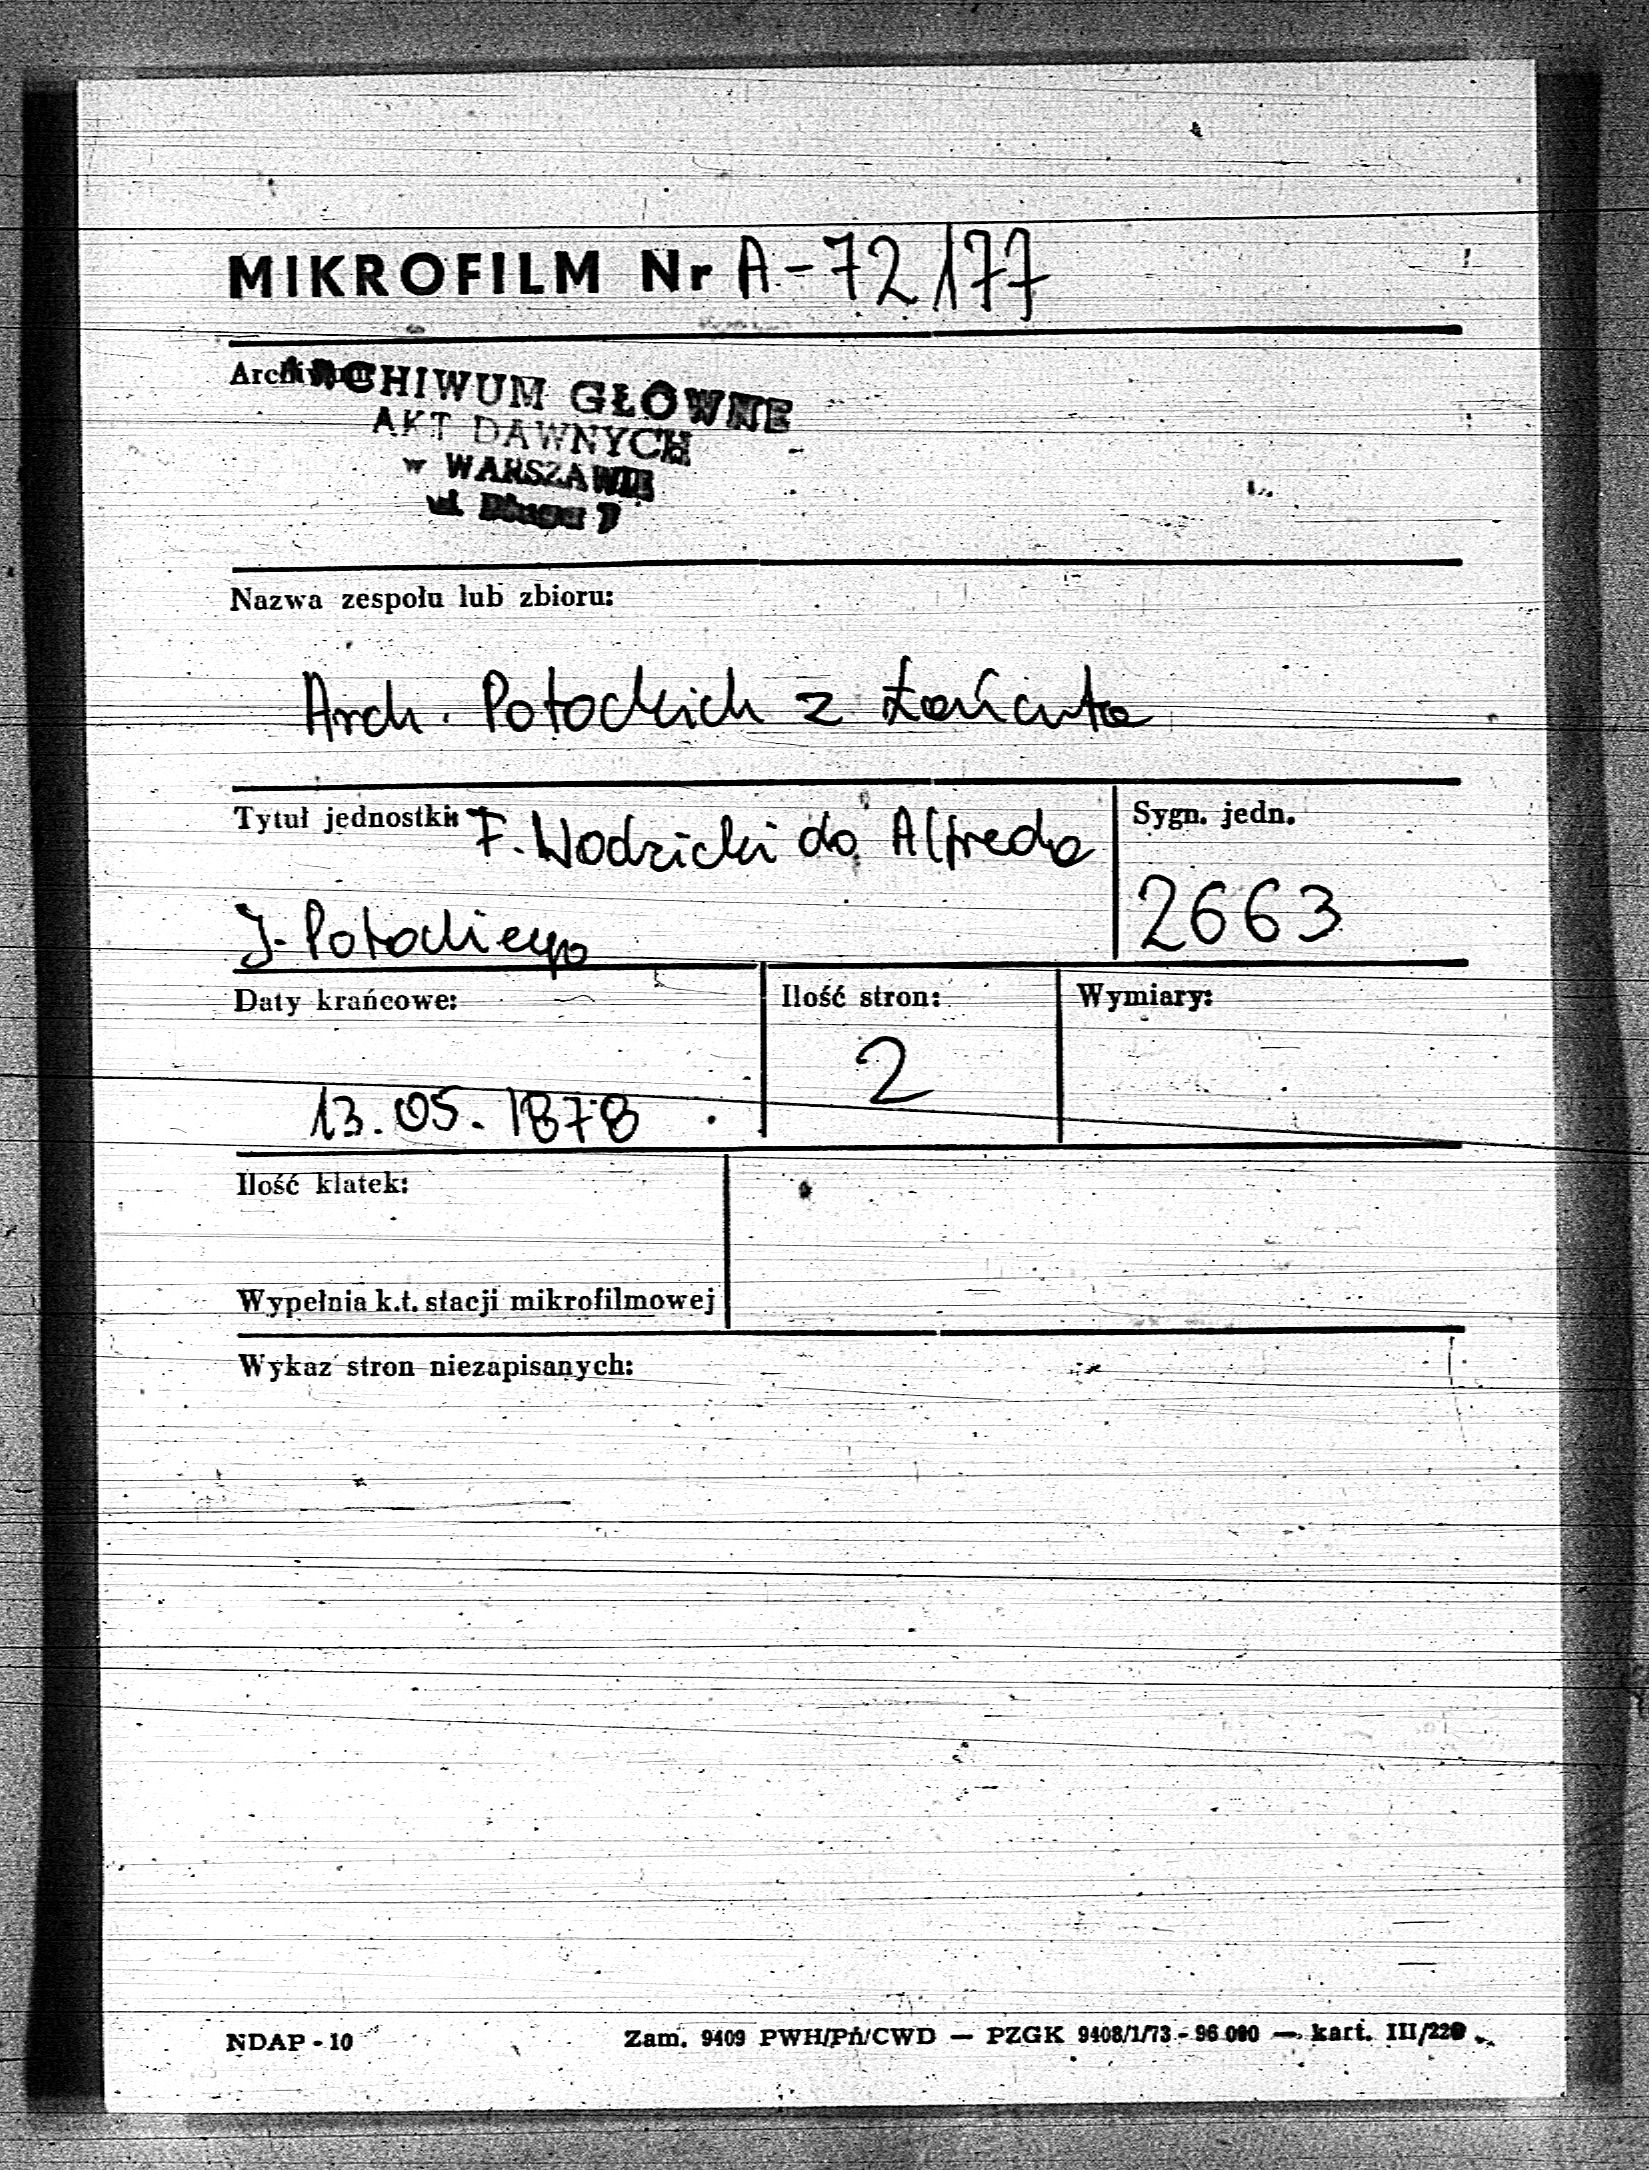 MIKROFILM Nr A-72177
Archiwum
ARCHIWUM GŁÓWNE
AKT DAWNYCH
w WARSZAWIE
ul. Długa 7
Nazwa zespołu lub zbioru:
Arch. Potockich z Łańcuta
Tytuł jednostki: F. Wodzicki do Alfreda
J. Potockiego
Sygn. jedn.
2663
Daty krańcowe:
13.05.1878
Ilość stron:
2
Wymiary:
Ilość klatek:
Wypełnia k.t. stacji mikrofilmowej
Wykaz stron niezapisanych:
NDAP - 10
Zam. 9409 PWH/PA/CWD — PZGK 9408/1/73 - 96 000 — kart. III/220